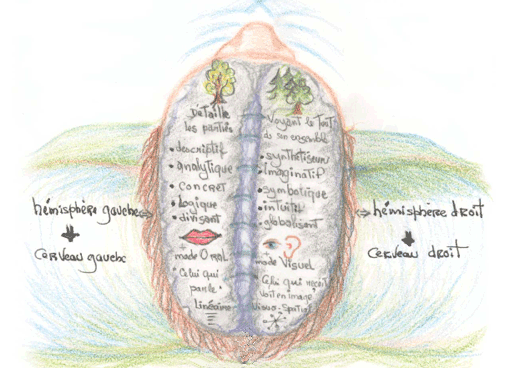 Détaille
les parties
• descriptif
• analytique
• concret
• logique
• divisant
mode ORAL
"Celui qui
parle"
linéaire
Voyant le Tout
ds son ensemble
• synthétiseur
• Imaginatif
• symbolique
• intuitif
• globalisant
mode Visuel
Celui qui reçoit
Voit en image
Visuo-Spatial
hémisphère gauche
Cerveau gauche
hémisphère droit
Cerveau droit